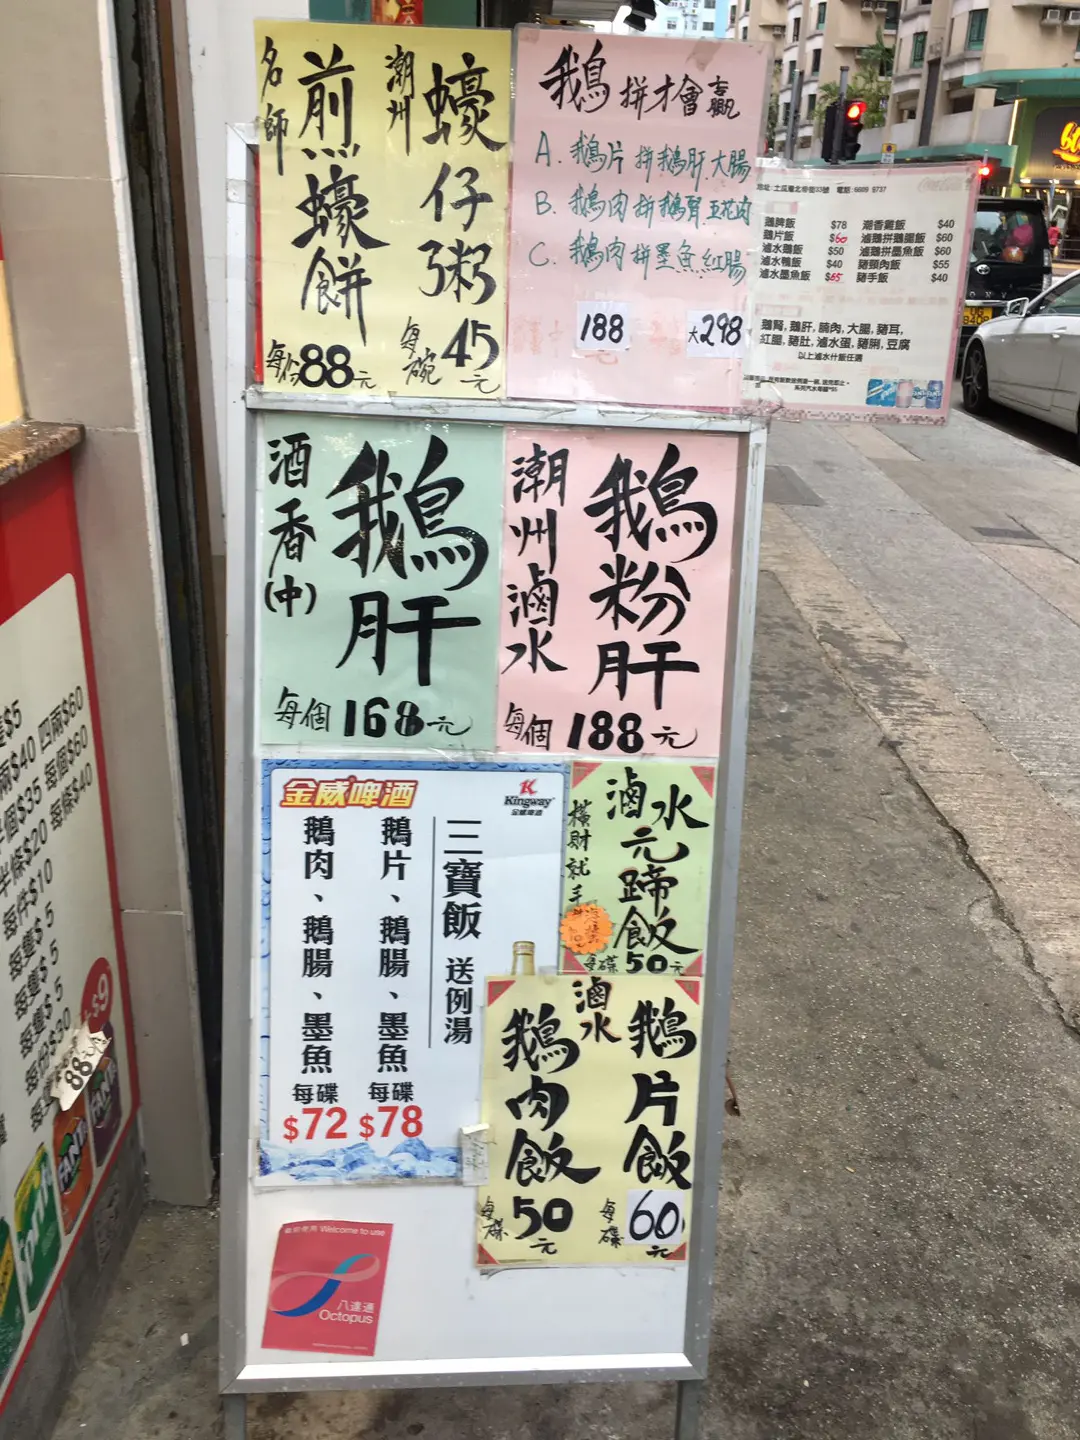 名師
煎蠔餅
每份88元
潮州
蠔仔粥
每碗45元
鵝拼才會贏
A. 鵝片拼鵝肝.大腸
B. 鵝肉拼鵝腎.五花肉
C. 鵝肉拼墨魚紅腸
188
大298
地址: 土瓜灣北帝街33號 電話: 6609 9737
Coca-Cola
鵝髀飯 $78
鵝片飯 $60
滷水鵝飯 $50
滷水鴨飯 $40
滷水墨魚飯 $65
潮香雞飯 $40
滷鵝拼鵝腸飯 $60
滷鵝拼墨魚飯 $60
豬頸肉飯 $55
豬手飯 $40
鵝腎, 鵝肝, 腩肉, 大腸, 豬耳,
紅腸, 豬肚, 滷水蛋, 豬脷, 豆腐
以上滷水什飯任選
酒香(中)
鵝肝
每個168元
潮州滷水
鵝粉肝
每個188元
金威啤酒
Kingway
金威啤酒
三寶飯 送例湯
鵝片、鵝腸、墨魚
每碟
$78
鵝肉、鵝腸、墨魚
每碟
$72
滷水
元蹄飯
橫財就手
每碟50元
滷水
鵝片飯
每碟60元
鵝肉飯
每碟50元
歡迎使用 Welcome to use
八達通
Octopus
隻$5
兩$40 四兩$60
半個$35 每個$60
半條$20 每條$40
每件$10
每隻$5
每隻$5
每隻$5
每份$20
$9
88元